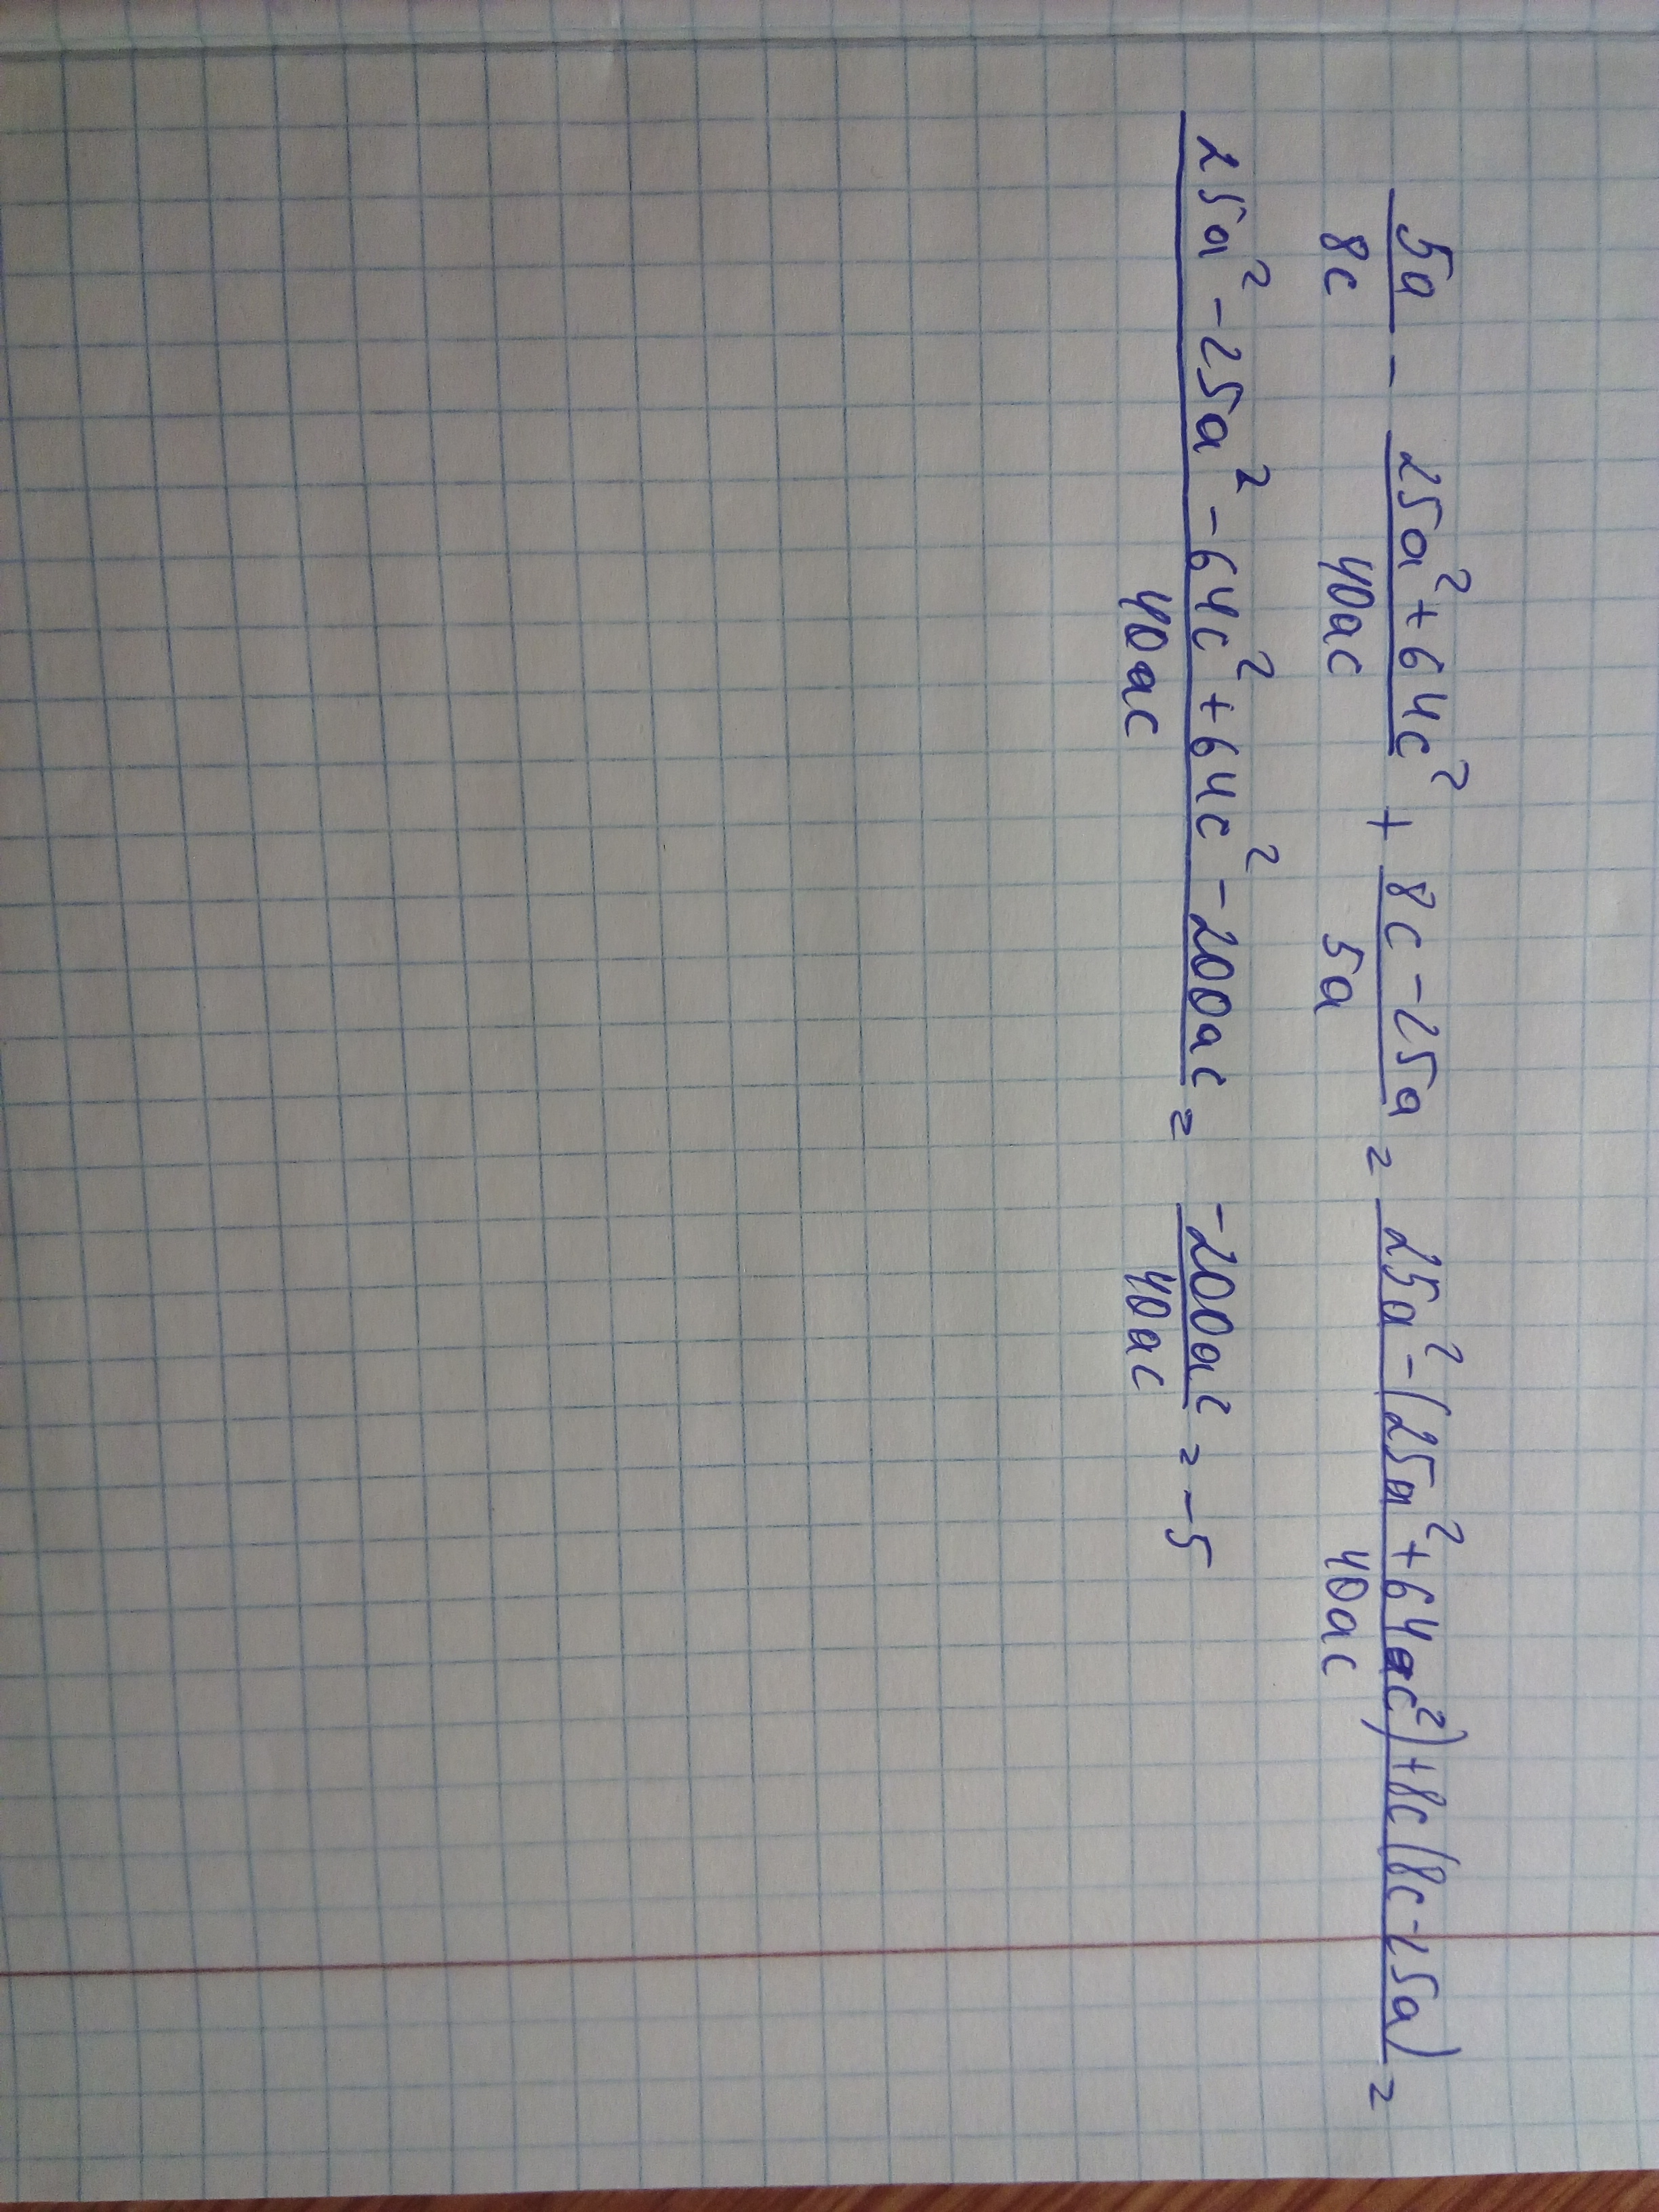 5a/8c - (25a² + 64c²)/40ac + (8c - 25a)/5a = (25a² - (25a² + 64c²) + 8c(8c - 25a))/40ac =
(25a² - 25a² - 64c² + 64c² - 200ac)/40ac = -200ac/40ac = -5